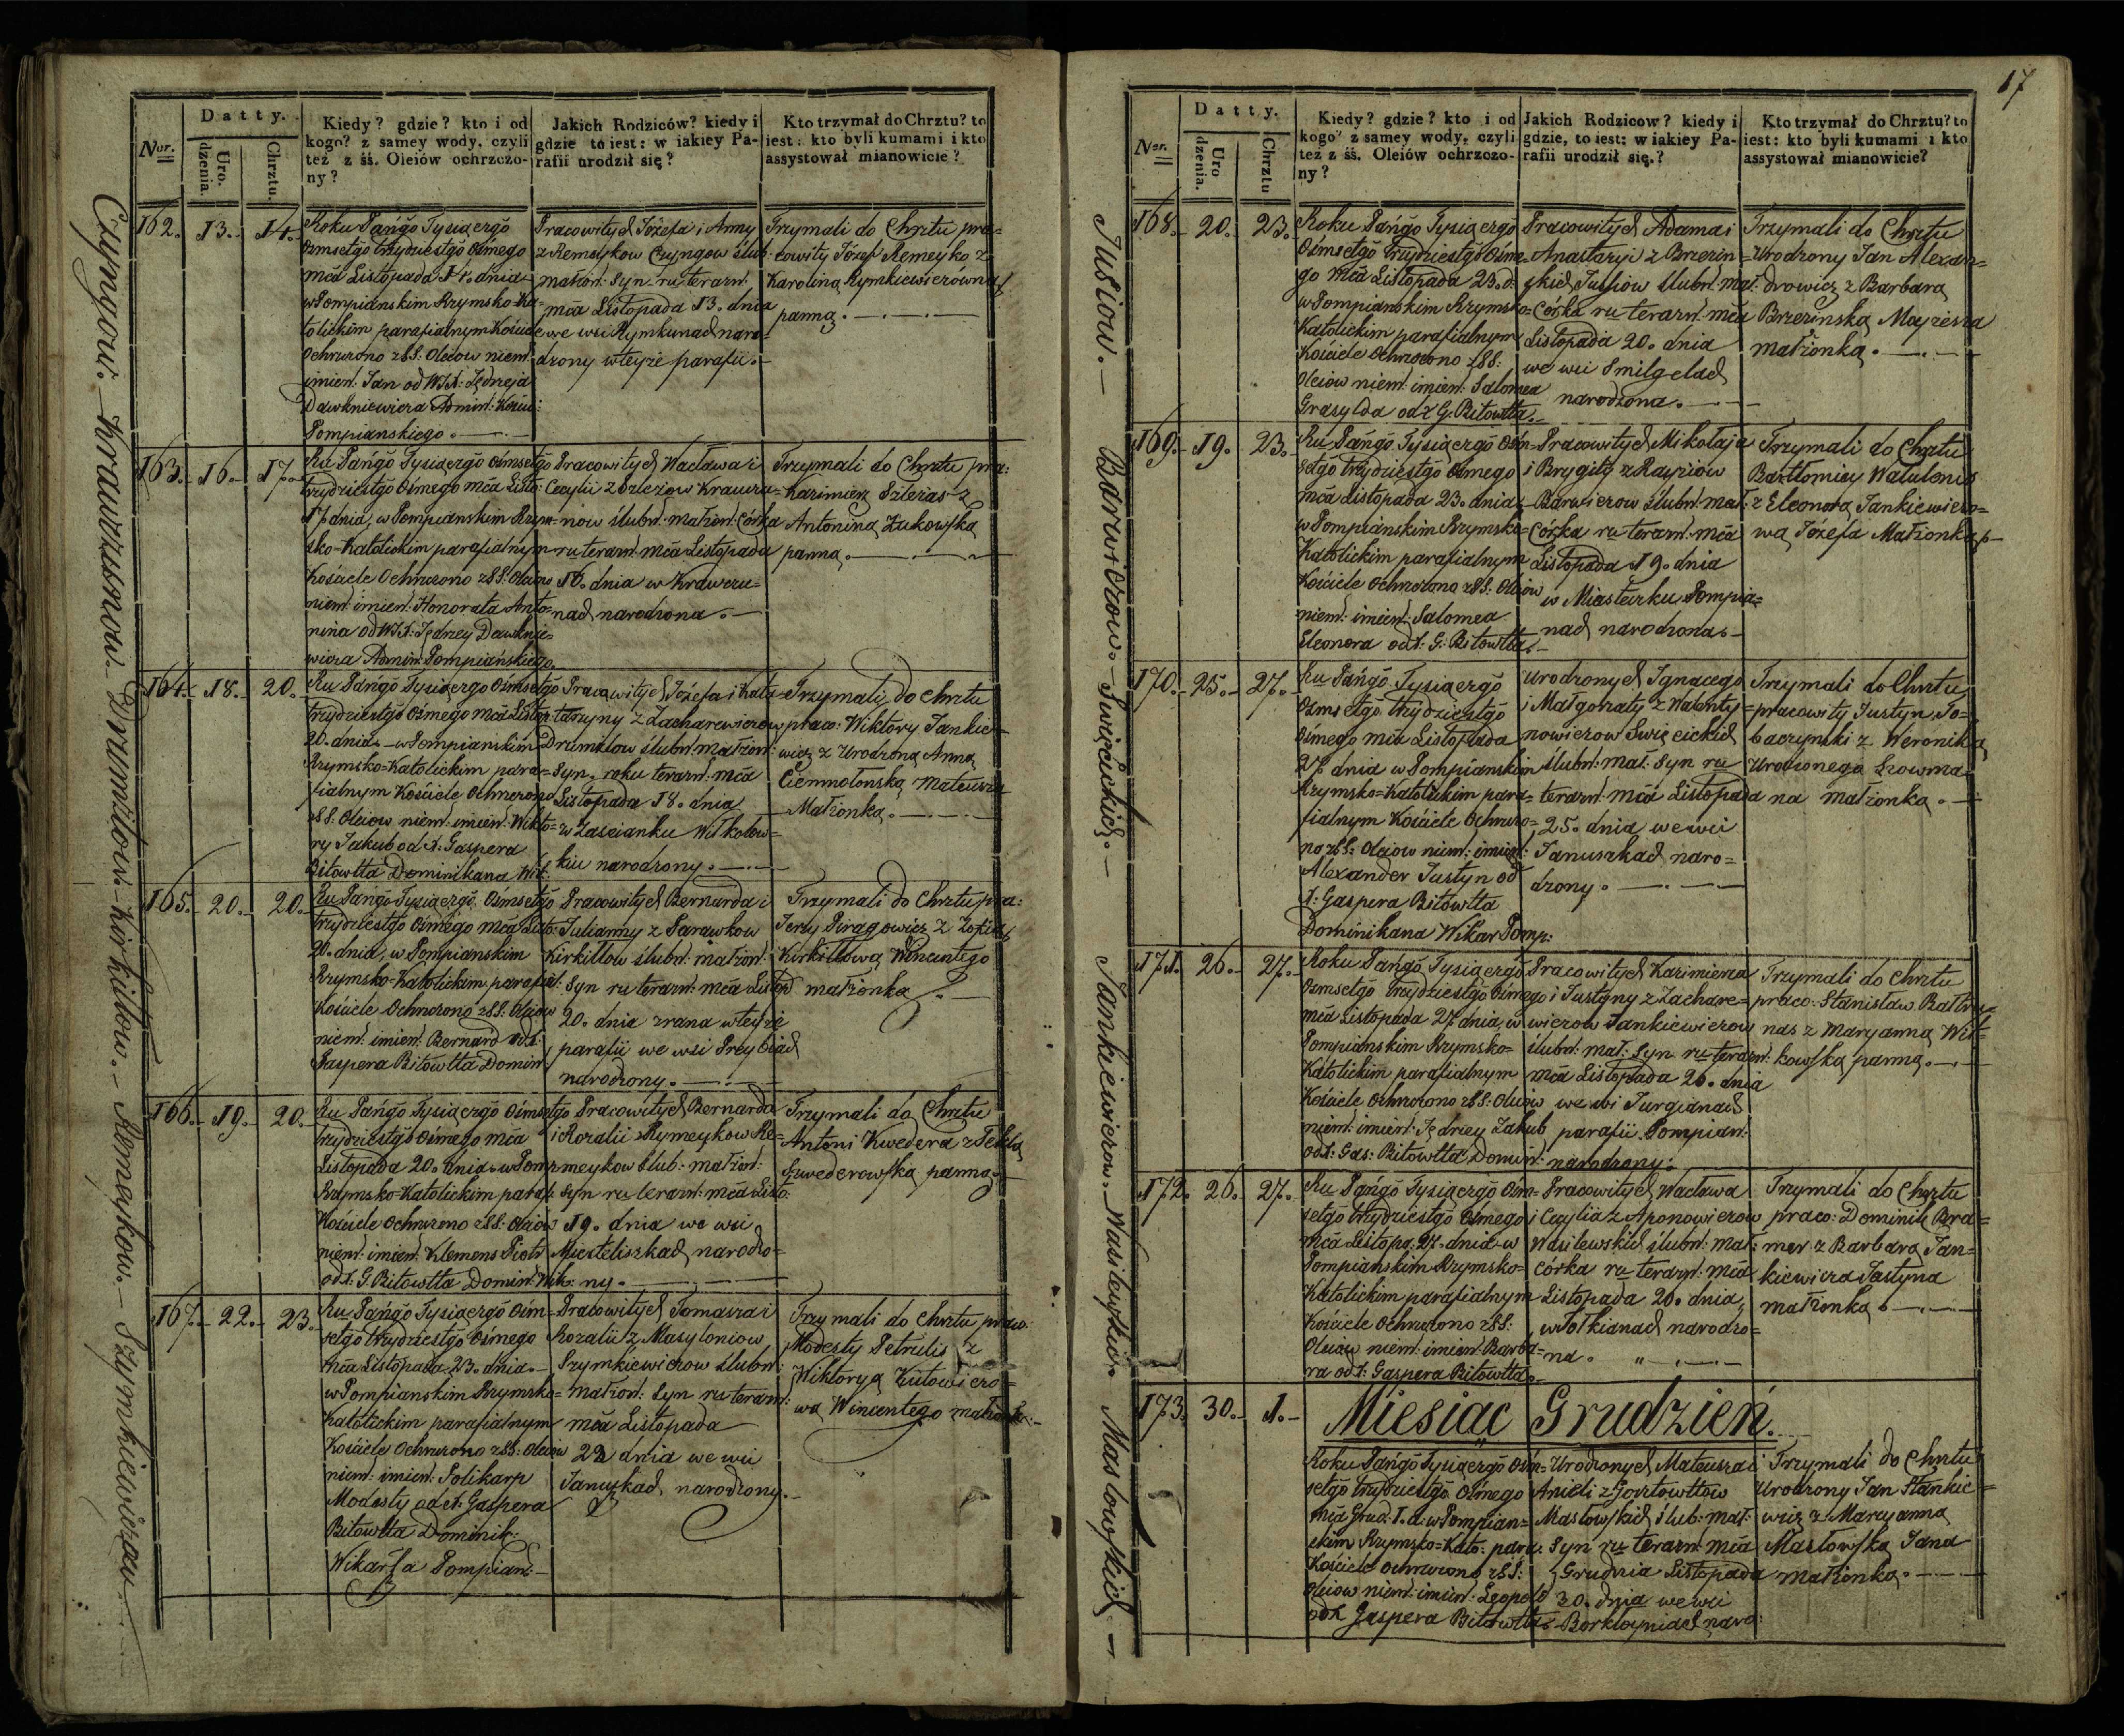 Czyngow. Krawczunow. Drumstow. Kirkiłow. Remeykow. Szymkiewiczow.
Nror.
Datty.
Uro.
dzenia.
Chrztu.
Kiedy? gdzie? kto i od
kogo? z samey wody, czyli
też z śś. Oleiów ochrzczo-
ny?
Jakich Rodziców? kiedy i
gdzie to iest: w iakiey Pa-
rafii urodził się?
Kto trzymał do Chrztu? to
iest: kto byli kumami i kto
assystował mianowicie?
162. 13. 14.
Roku Pańgo Tysiączgo
Ośmsetgo trzydziestgo Ośmego
mca Listopada 14. dnia
w Pompianskim Rzymsko-Ka=
tolickim parafialnym Kościele
Ochrzczono z SS. Oleiow niem:
imien: Jan od WJX: Jędrzeja
Dawkniewicza Admin: Kościo:
Pompianskiego.
Pracowitych Józefa i Anny
z Remeykow Czyngow ślub:
małżon: Syn ru terazn:
mca Listopada 13. dnia
we wsi Rymkunach naro=
dzony w teyże parafii.
Trzymali do Chrztu pra=
cowity Józef Remeyko z
Karoliną Rymkiewiczówną
panną.
163. 16. 17.
Ru Pańgo Tysiączgo Ośmsetgo
trzydziestgo Ośmego mca Listo:
17 dnia, w Pompianskim Rzym=
sko-Katolickim parafialnym
Kościele Ochrzczono z SS: Oleiow
niem: imien: Honorata Anto=
nina od WJX: Jędrzey Dawknie=
wicza Admin: Pompiańskiego
Pracowitych Wacława i
Cecylii z Szleziow Krawcza=
now ślubn: małżon: Córka
ru terazn: mca Listopada
16. dnia w Krawczu=
nach narodzona.
Trzymali do Chrztu pra:
Kazimierz Szlezas z
Antoniną Zukowską
panną.
164. 18. 20.
Ru Pańgo Tysiączgo Ośmsetgo
trzydziestgo Ośmego mca Listop:
20. dnia w Pompianskim
Rzymsko-Katolickim para=
fialnym Kościele Ochrzczono
z SS. Oleiow niem: imien: Wikto=
ry Jakub od X: Gaspera
Bitowtta Dominikana Wik:
Pracowitych Józefa i Kata=
rzyny z Zacharewiczow
Drumstow ślubn: małżon:
Syn, roku terazn: mca
Listopada 18. dnia
w Zascianku Wilkołow=
kiu narodzony.
Trzymali do Chrztu
praco: Wiktory Jankie=
wicz z Urodzoną Anną
Ciemnołonską Mateusza
Małżonką.
165. 20. 20.
Ru Pańgo Tysiączgo Ośmsetgo
trzydziestgo Ośmego mca Listo:
20. dnia, w Pompianskim
Rzymsko-Katolickim parafial:
Kościele Ochrzczono z SS. Oleiow
niem: imien: Bernard od X:
Gaspera Bitowtta Domin:
Pracowitych Bernarda i
Julianny z Parawkow
Kirkiłłow ślubn: małżon:
Syn ru terazn: mca Listop
20. dnia zrana w teyże
parafii we wsi Preybiach
narodzony.
Trzymali do Chrztu pra:
Jerzy Piragowicz z Zofią
Kirkiłłową Wincentego
małżonką.
166. 19. 20.
Ru Pańgo Tysiączgo Ośmsetgo
trzydziestgo Ośmego mca
Listopada 20. dnia w Pomp:
Rzymsko-Katolickim paraf:
Kościele Ochrzczono z SS: Oleiow
niem: imien: Klemens Piotr
od X: G. Bitowtta Domin: Wik:
Pracowitych Bernarda
i Rozalii z Rymeykow Re=
meykow ślub: małżon:
Syn ru terazn: mca Listo:
19. dnia we wsi
Mieżteliszkach narodzo=
ny.
Trzymali do Chrztu
Antoni Kwedera z Teklą
Szwederowską panną.
167. 22. 23.
Ru Pańgo Tysiączgo Ośm=
setgo trzydziestgo Ośmego
mca Listopada 23. dnia
w Pompianskim Rzymsko=
Katolickim parafialnym
Kościele Ochrzczono z SS: Oleiow
niem: imien: Polikarp
Modesty od X: Gaspera
Bitowtta Dominik:
Wikar: Pompian:
Pracowitych Tomasza i
Rozalii z Masyloniow
Szymkiewiczow ślubn:
małżon: Syn ru terazn:
mca Listopada
22 dnia we wsi
Januszkach narodzony.
Trzymali do Chrztu praco:
Modesty Petrulis z
Wiktoryą Kutowiczo=
wą Wincentego małżonką.
17
Jusiow. Barwiczow. Święcickich. Jankiewiczow. Wasilewskich. Masłowskich.
Nror.
Datty.
Uro
dzenia.
Chrztu
Kiedy? gdzie? kto i od
kogo? z samey wody, czyli
też z śś. Oleiów ochrzczo-
ny?
Jakich Rodzicow? kiedy i
gdzie, to iest: w iakiey Pa-
rafii urodził się?
Kto trzymał do Chrztu? to
iest: kto byli kumami i kto
assystował mianowicie?
168. 20. 23.
Roku Pańgo Tysiączgo
Ośmsetgo trzydziestgo Ośme
go mca Listopada 23. d:
w Pompianskim Rzymsko=
Katolickim parafialnym
Kościele Ochrzczono z SS:
Oleiow niem: imien: Salomea
Grasylda od X G. Bitowtta.
Pracowitych Adama i
Anastazyi z Brzezin=
skich Jusiow ślubn: mał:
Córka ru terazn: mca
Listopada 20. dnia
we wsi Smilgelach
narodzona.
Trzymali do Chrztu
Urodzony Jan Alexan=
drowicz z Barbarą
Brzezinską Moyżesza
małżonką.
169. 19. 23.
Ru Pańgo Tysiączgo Ośm=
setgo trzydziestgo Ośmego
mca Listopada 23. dnia
w Pompianskim Rzymsko=
Katolickim parafialnym
Kościele Ochrzczono z SS: Oleiow
niem: imien: Salomea
Eleonora od X: G: Bitowtta.
Pracowitych Mikołaja
i Brygity z Rayziow
Barwiczow ślubn: mał:
Córka ru terazn: mca
Listopada 19. dnia
w Miasteczku Pompia=
nach narodzona.
Trzymali do Chrztu
Bartłomiey Watulonis
z Eleonorą Jankiewiczo=
wą Józefa Małżonką.
170. 25. 27.
Ru Pańgo Tysiączgo
Ośmsetgo trzydziestgo
Ośmego mca Listopada
27 dnia w Pompianskim
Rzymsko=Katolickim para=
fialnym Kościele Ochrzczo=
no z SS: Oleiow niem: imien:
Alexander Justyn od
X: Gaspera Bitowtta
Dominikana Wikar Pomp:
Urodzonych Ignacego
i Małgorzaty z Walenty=
nowiczow Święcickich
ślubn: mał: Syn ru
terazn: mca Listopada
25. dnia we wsi
Januszkach naro=
dzony.
Trzymali do Chrztu
pracowity Justyn To=
baczynski z Weroniką
Urodzonego Szowma
na małżonką.
171. 26. 27.
Roku Pańgo Tysiączgo
Ośmsetgo trzydziestgo Ośmego
mca Listopada 27 dnia, w
Pompianskim Rzymsko=
Katolickim parafialnym
Kościele Ochrzczono z SS: Oleiow
niem: imien: Jędrzey Jakub
od X: Gas: Bitowtta Domin:
Pracowitych Kazimierza
i Justyny z Zachare=
wiczow Jankiewiczow
ślubn: mał: Syn ru terazn:
mca Listopada 26. dnia
we wsi Jurgianach
parafii Pompian:
narodzony.
Trzymali do Chrztu
praco: Stanisław Bałtru=
nas z Maryanną Wit=
kowską panną.
172. 26. 27.
Ru Pańgo Tysiączgo Ośm=
setgo trzydziestgo Ośmego
mca Listopa: 27. dnia w
Pompianskim Rzymsko=
Katolickim parafialnym
Kościele Ochrzczono z SS:
Oleiow niem: imien: Barba=
ra od X: Gaspera Bitowtta.
Pracowitych Wacława
i Cecylii z Aponowiczow
Wasilewskich ślubn: mał:
Córka ru terazn: mca
Listopada 26. dnia,
w Tołkianach narodzo=
na.
Trzymali do Chrztu
praco: Dominik Bra=
mer z Barbarą Jan=
kiewicza Jastyna
małżonką.
173. 30. 1.
Miesiąc Grudzień.
Roku Pańgo Tysiączgo Ośm=
setgo trzydziestgo Ośmego
mca Grud: 1. d: w Pompian=
skim Rzymsko=Kato: para:
Kościele Ochrzczono z SS:
Oleiow niem: imien: Leopold
od X Gaspera Bitowtta
Urodzonych Mateusza i
Anieli z Gosztowttow
Masłowskich ślub: mał:
Syn ru terazn: mca
Grudnia Listopada
30. dnia we wsi
Borkłoyniach naro:
Trzymali do Chrztu
Urodzony Jan Stankie=
wicz z Maryanną
Masłowską Jana
małżonką.